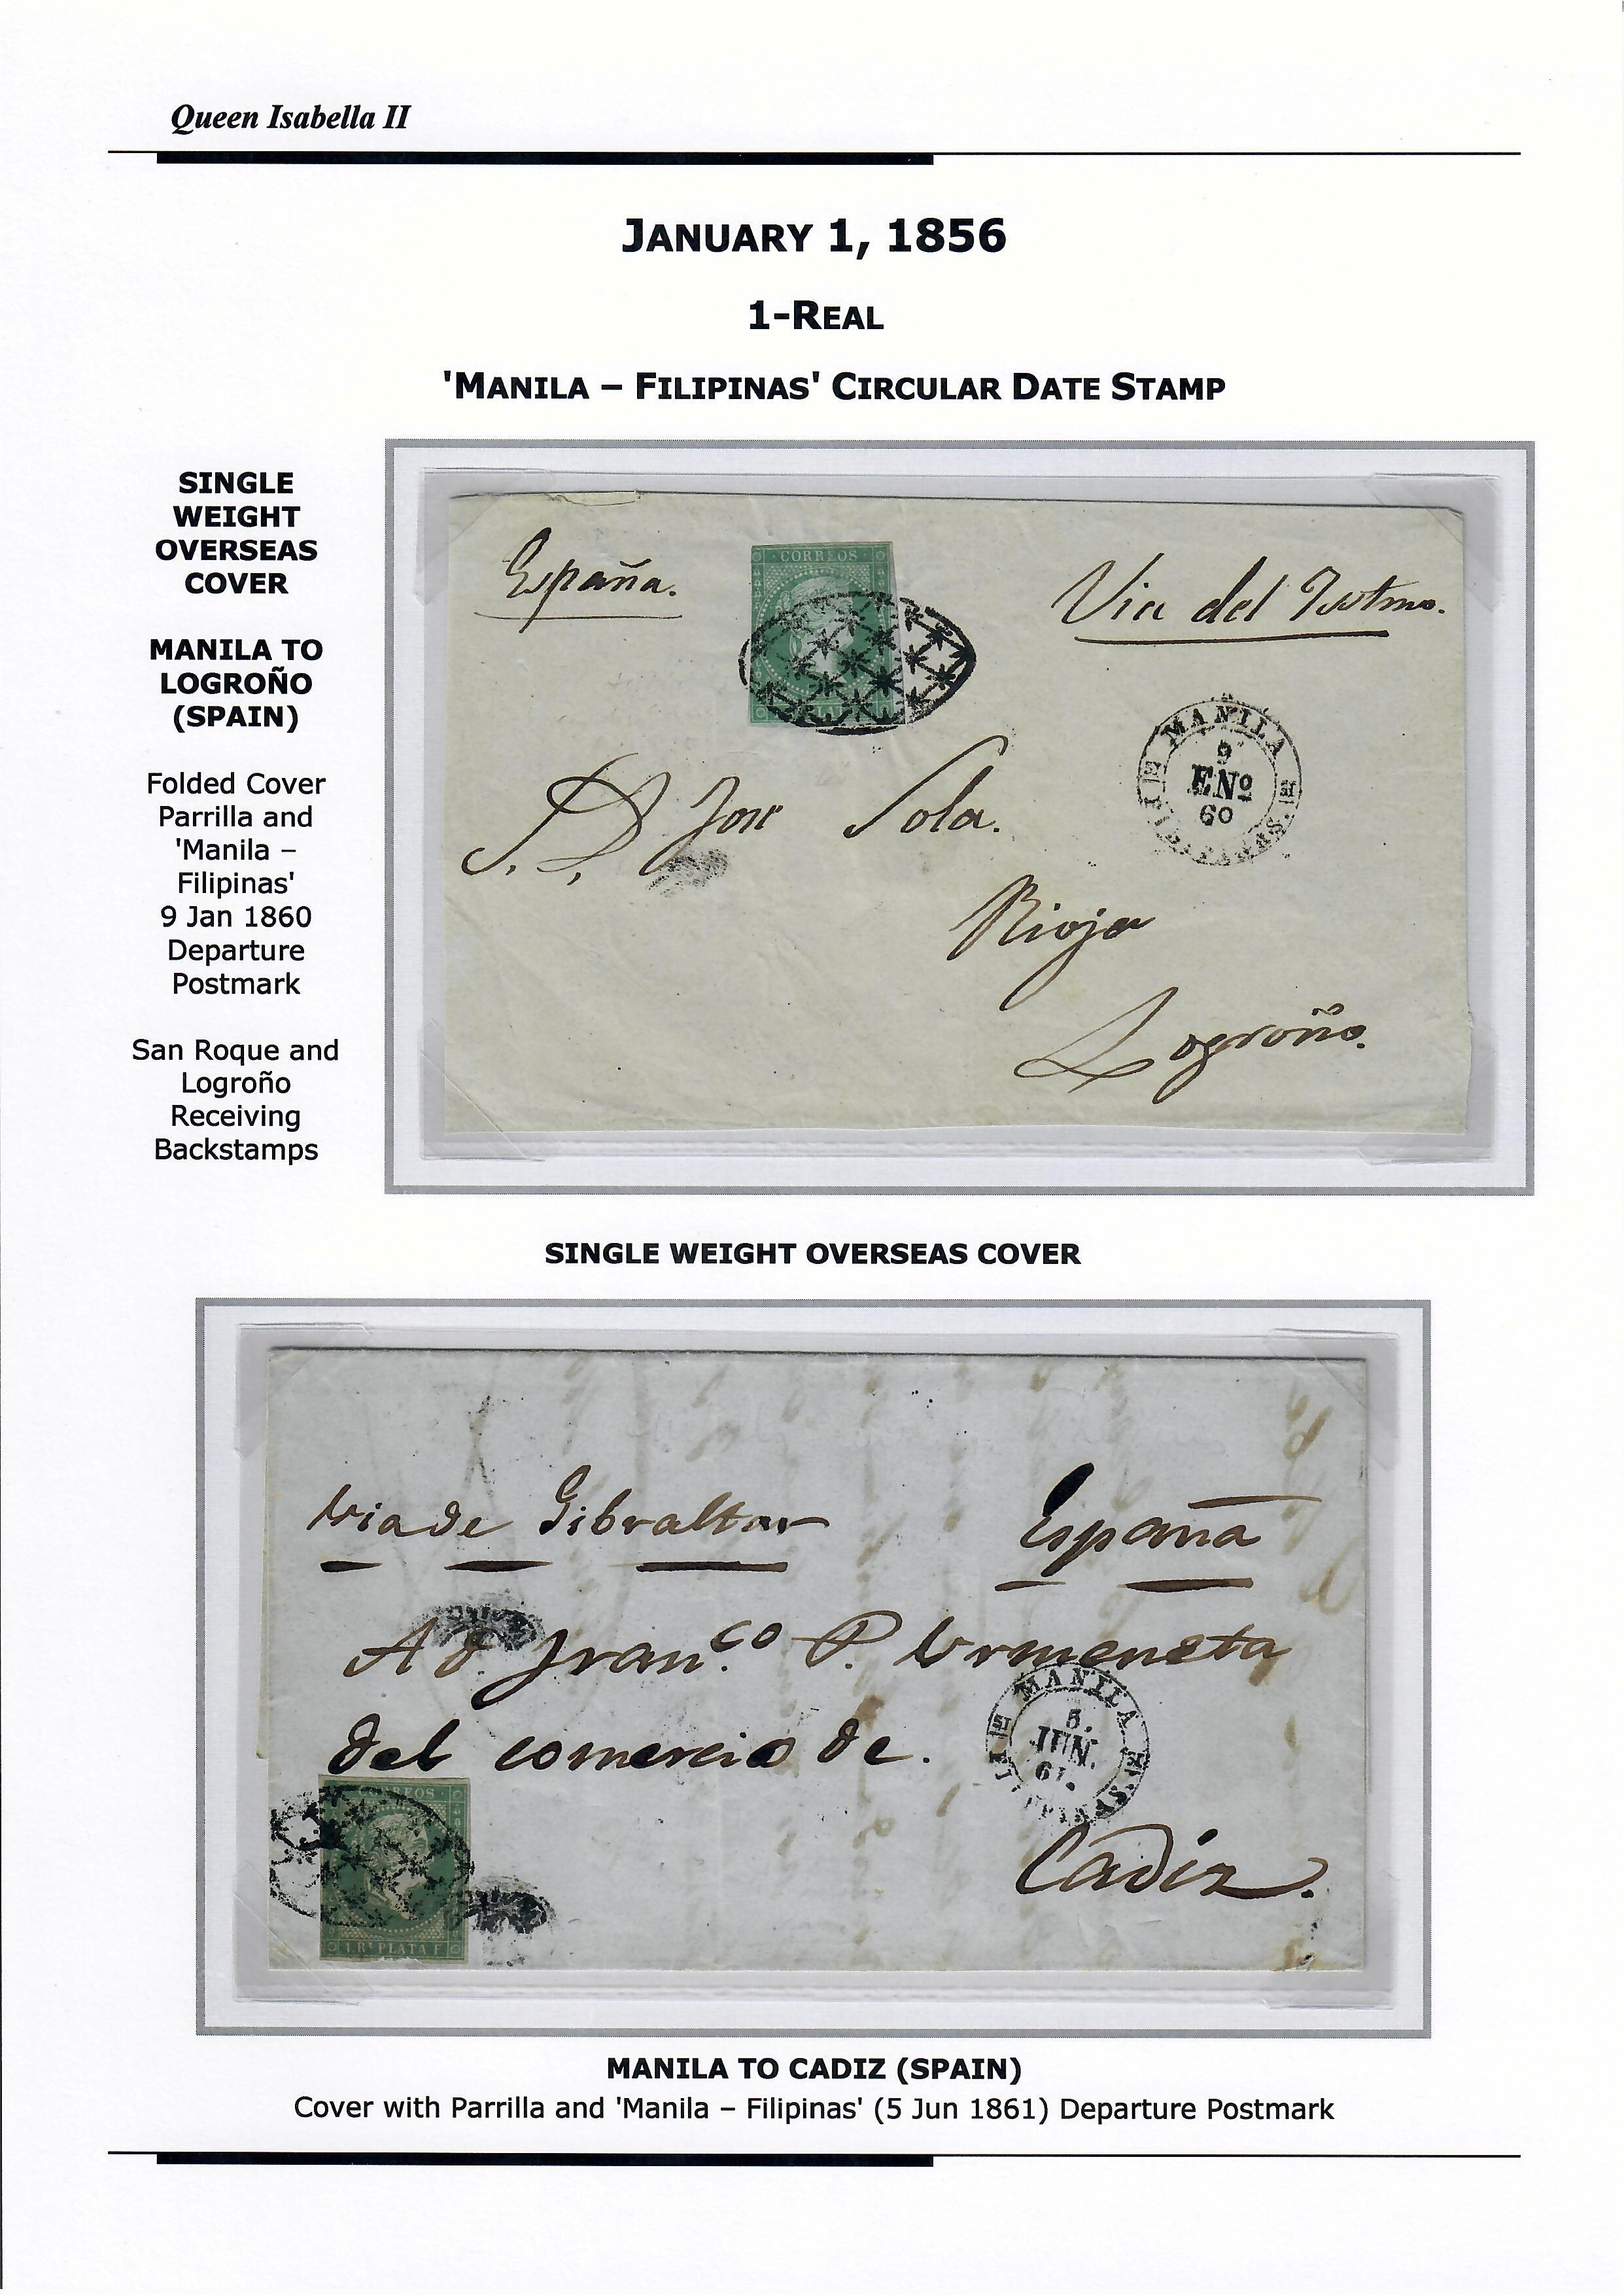 Queen Isabella II
JANUARY 1, 1856
1-REAL
'MANILA – FILIPINAS' CIRCULAR DATE STAMP
SINGLE
WEIGHT
OVERSEAS
COVER
MANILA TO
LOGROÑO
(SPAIN)
Folded Cover
Parrilla and
'Manila –
Filipinas'
9 Jan 1860
Departure
Postmark
San Roque and
Logroño
Receiving
Backstamps
España.
CORREOS
Via del Istmo.
MANILA
9
ENº
60
S. D. Jose Sola.
Rioja
Logroño.
SINGLE WEIGHT OVERSEAS COVER
Via de Gibraltar
España
A d. Fran.co P. Urmeneta
MANILA
5.
JUN.
61.
del comercio de.
CORREOS
1 Rl PLATA F
Cadiz.
MANILA TO CADIZ (SPAIN)
Cover with Parrilla and 'Manila – Filipinas' (5 Jun 1861) Departure Postmark